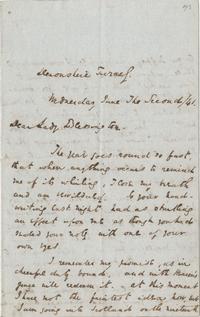 Devonshire Terrace.
Wednesday June The Second/41.
Dear Lady Blessington.
The year goes round so fast,
that when anything occurs to remind
me of its whirling, I lose my breath
and am bewildered. So your hand-
writing last night had as startling
an effect upon me as though you had
sealed your note with one of your
own eyes.
I remember my promise, as in
cheerful duty bound, and with Heaven's
grace will redeem it. At this moment
I have not the faintest idea how, but
I am going into Scotland on the nineteenth